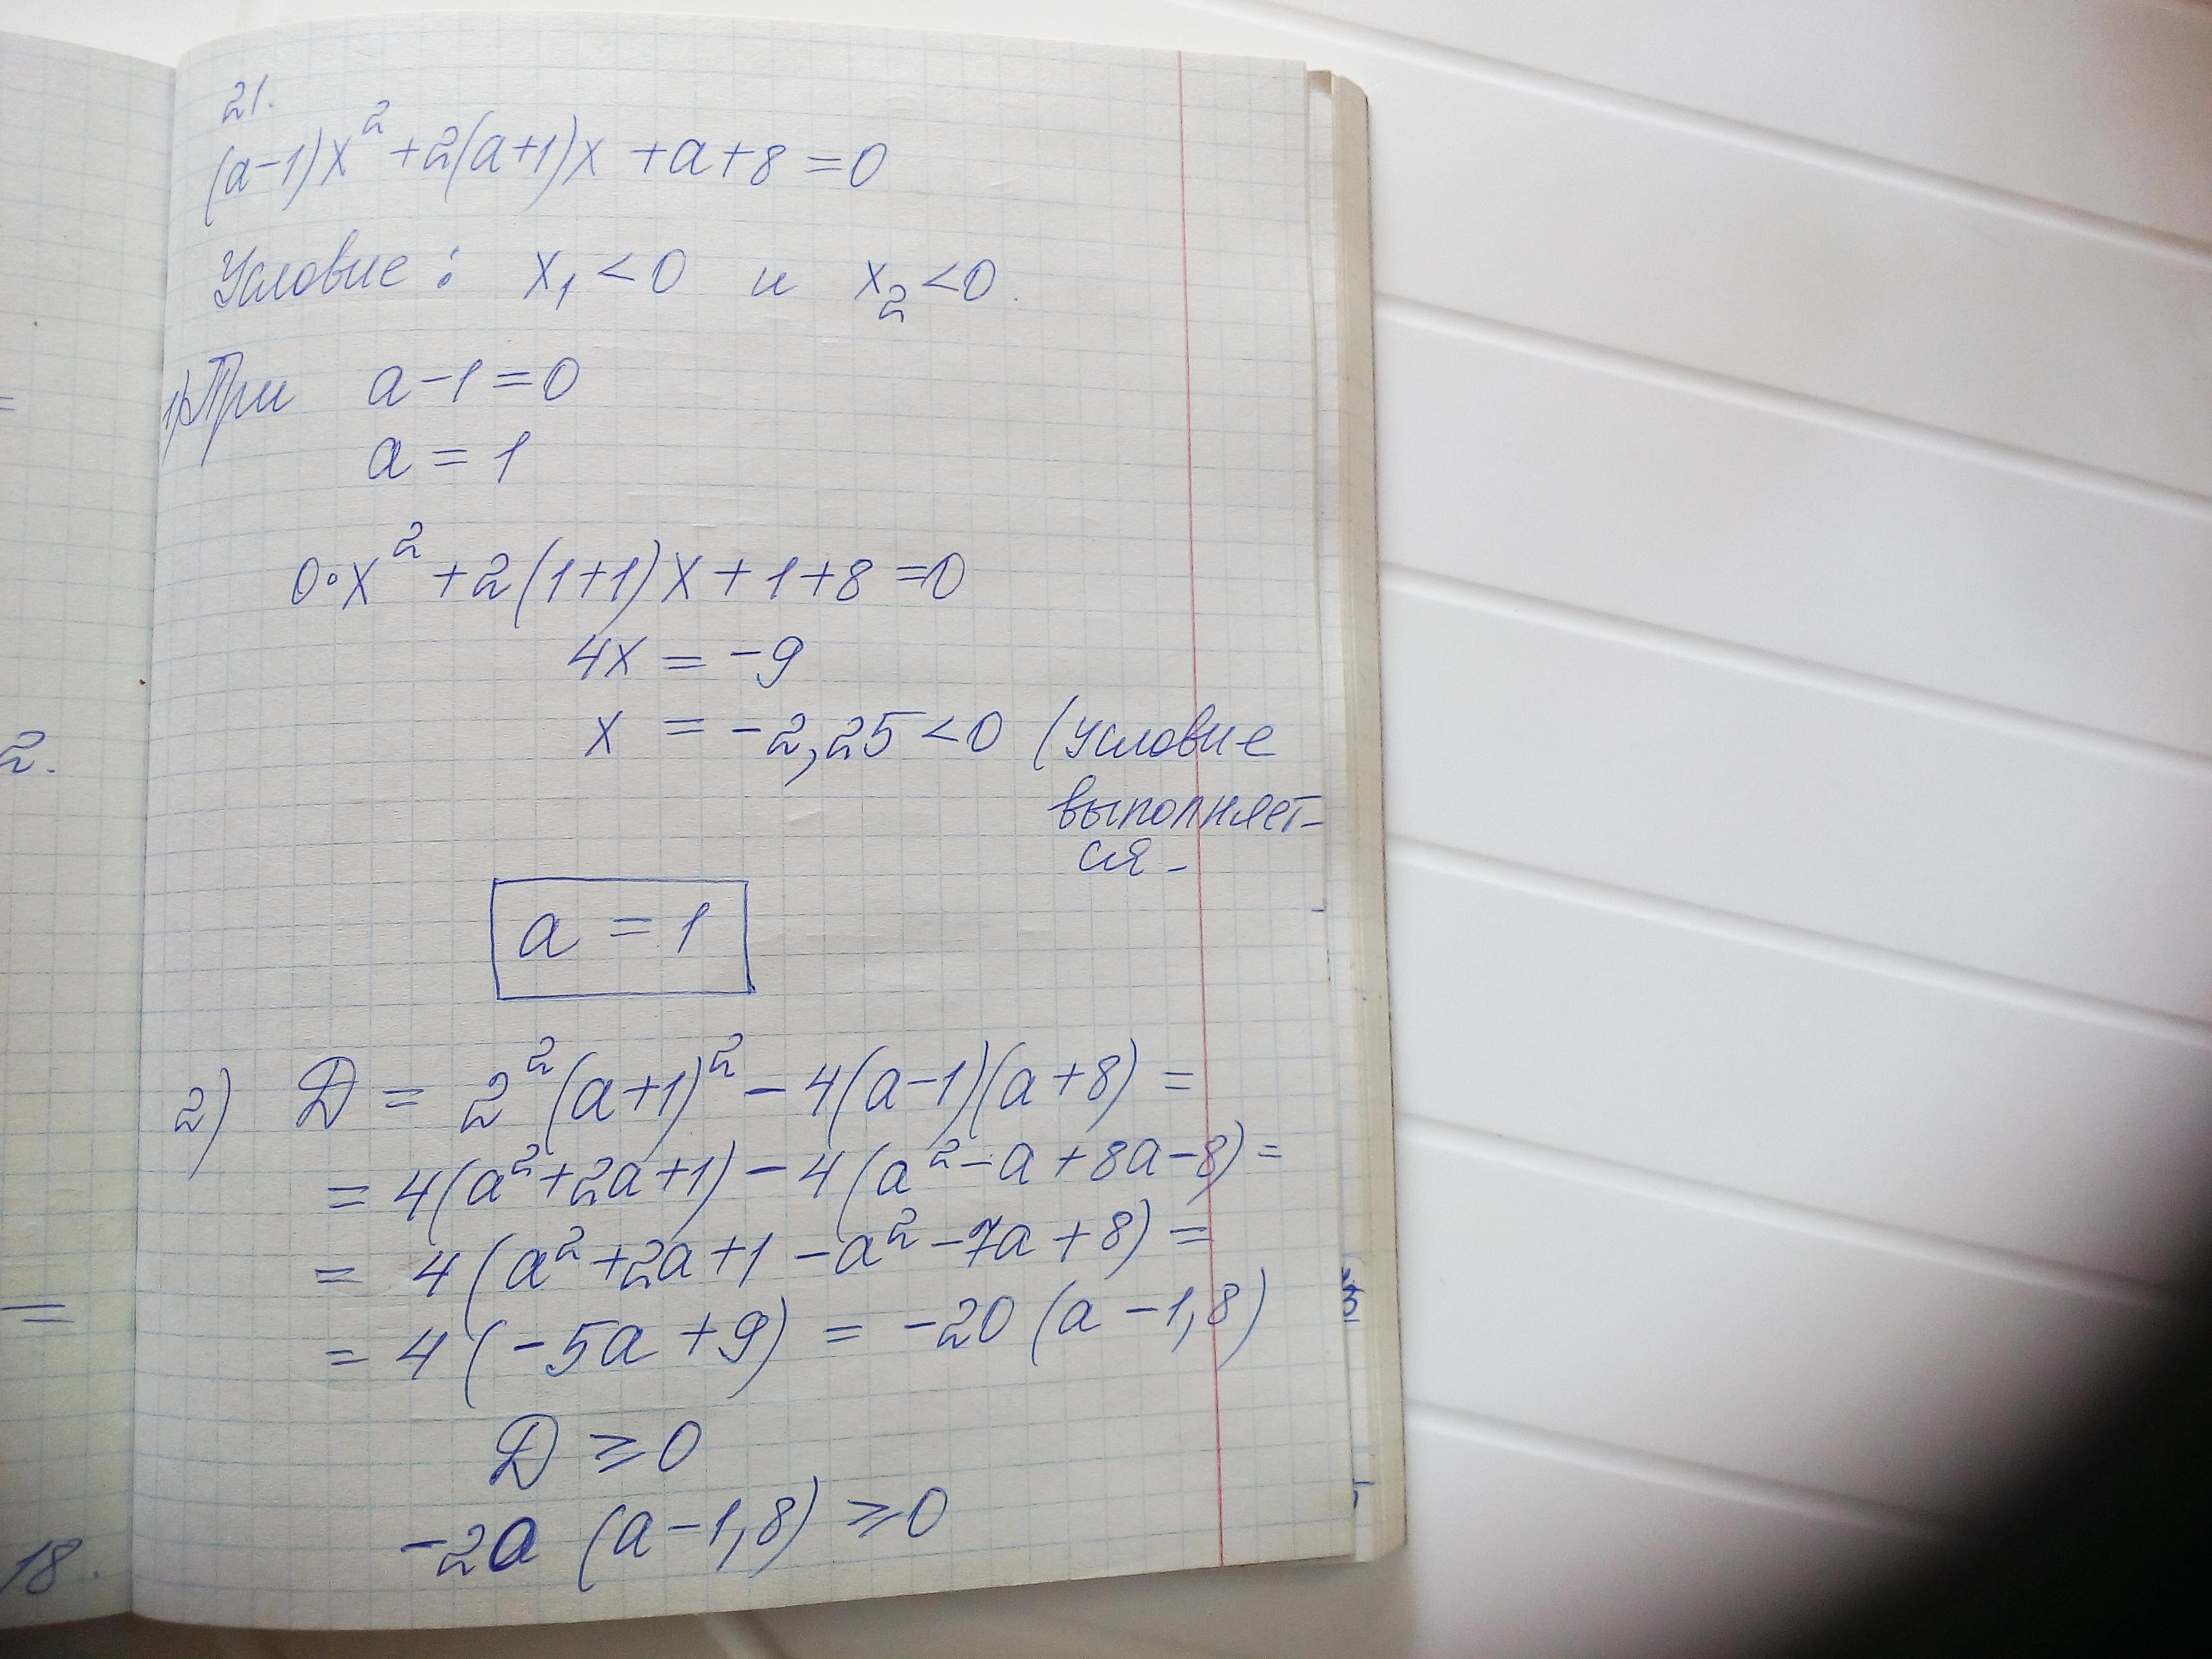 21.
(a-1)x² +2(a+1)x +a+8 =0
Условие: x₁ <0 и x₂ <0.
1) При a-1=0
a = 1
0·x² +2(1+1)x +1+8 =0
4x = -9
x = -2,25 <0 (условие
выполняет-
ся -
a = 1
2) D = 2²(a+1)² - 4(a-1)(a+8) =
= 4(a²+2a+1) - 4(a²-a+8a-8) =
= 4(a²+2a+1 -a² -7a +8) =
= 4(-5a +9) = -20(a -1,8)
D ≥ 0
-20 (a-1,8) ≥0
=
2.
=
18.